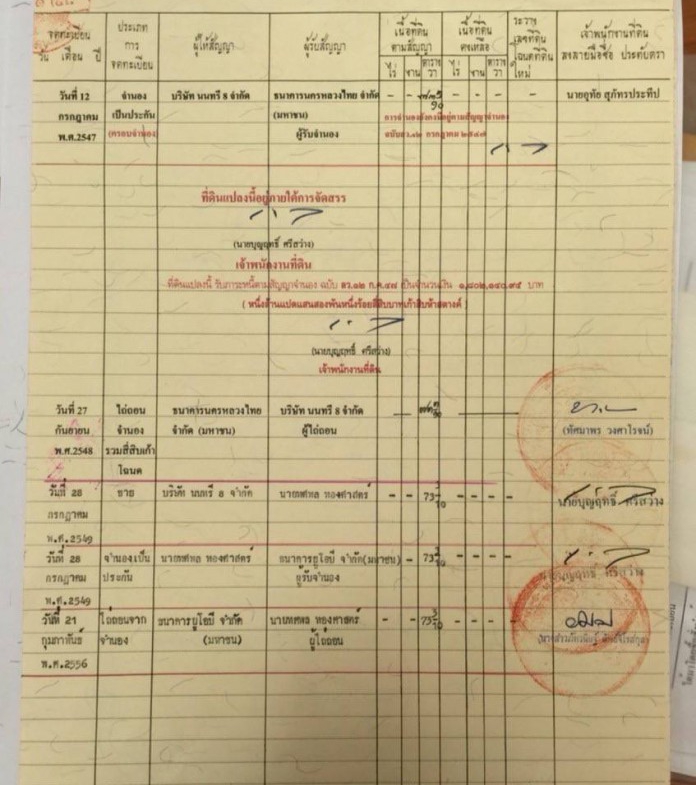 จดทะเบียน
วัน เดือน ปี
ประเภท
การ
จดทะเบียน
ผู้ให้สัญญา
ผู้รับสัญญา
เนื้อที่ดิน
ตามสัญญา
ไร่ งาน ตาราง
วา
เนื้อที่ดิน
คงเหลือ
ไร่ งาน ตาราง
วา
ระวาง
เลขที่ดิน
โฉนดที่ดิน
ใหม่
เจ้าพนักงานที่ดิน
ลงลายมือชื่อ ประทับตรา
วันที่ 12 จำนอง บริษัท นนทรี 8 จำกัด ธนาคารนครหลวงไทย จำกัด - - - - - - นายอุทัย สุภัทรประทีป
กรกฎาคม เป็นประกัน (มหาชน) การจำนองยังคงมีอยู่ตามสัญญาจำนอง
พ.ศ.2547 (ครอบจำนอง) ผู้รับจำนอง ฉบับลว.๑๒ กรกฎาคม ๒๕๔๗
ที่ดินแปลงนี้อยู่ภายใต้การจัดสรร
(นายบุญฤทธิ์ ศรีสว่าง)
เจ้าพนักงานที่ดิน
ที่ดินแปลงนี้ รับภาระหนี้ตามสัญญาจำนอง ฉบับ ลว.๑๒ ก.ค.๔๗ เป็นจำนวนเงิน ๑,๘๐๒,๑๔๐.๙๕ บาท
( หนึ่งล้านแปดแสนสองพันหนึ่งร้อยสี่สิบบาทเก้าสิบห้าสตางค์ )
(นายบุญฤทธิ์ ศรีสว่าง)
เจ้าพนักงานที่ดิน
วันที่ 27 ไถ่ถอน ธนาคารนครหลวงไทย บริษัท นนทรี 8 จำกัด
กันยายน จำนอง จำกัด (มหาชน) ผู้ไถ่ถอน (ทัศมาพร วงศาโรจน์)
พ.ศ.2548 รวมสี่สิบเก้า
โฉนด
วันที่ 28 ขาย บริษัท นนทรี 8 จำกัด นายทศพล ทองศาสตร์ - - 73 3/10 - - - - นายบุญฤทธิ์ ศรีสว่าง
กรกฎาคม
พ.ศ.2549
วันที่ 28 จำนองเป็น นายทศพล ทองศาสตร์ ธนาคารยูโอบี จำกัด(มหาชน) - - 73 3/10 - - - -
กรกฎาคม ประกัน ผู้รับจำนอง นายบุญฤทธิ์ ศรีสว่าง
พ.ศ.2549
วันที่ 21 ไถ่ถอนจาก ธนาคารยูโอบี จำกัด นายทศพล ทองศาสตร์ - - 73 3/10 - - - -
กุมภาพันธ์ จำนอง (มหาชน) ผู้ไถ่ถอน
พ.ศ.2556